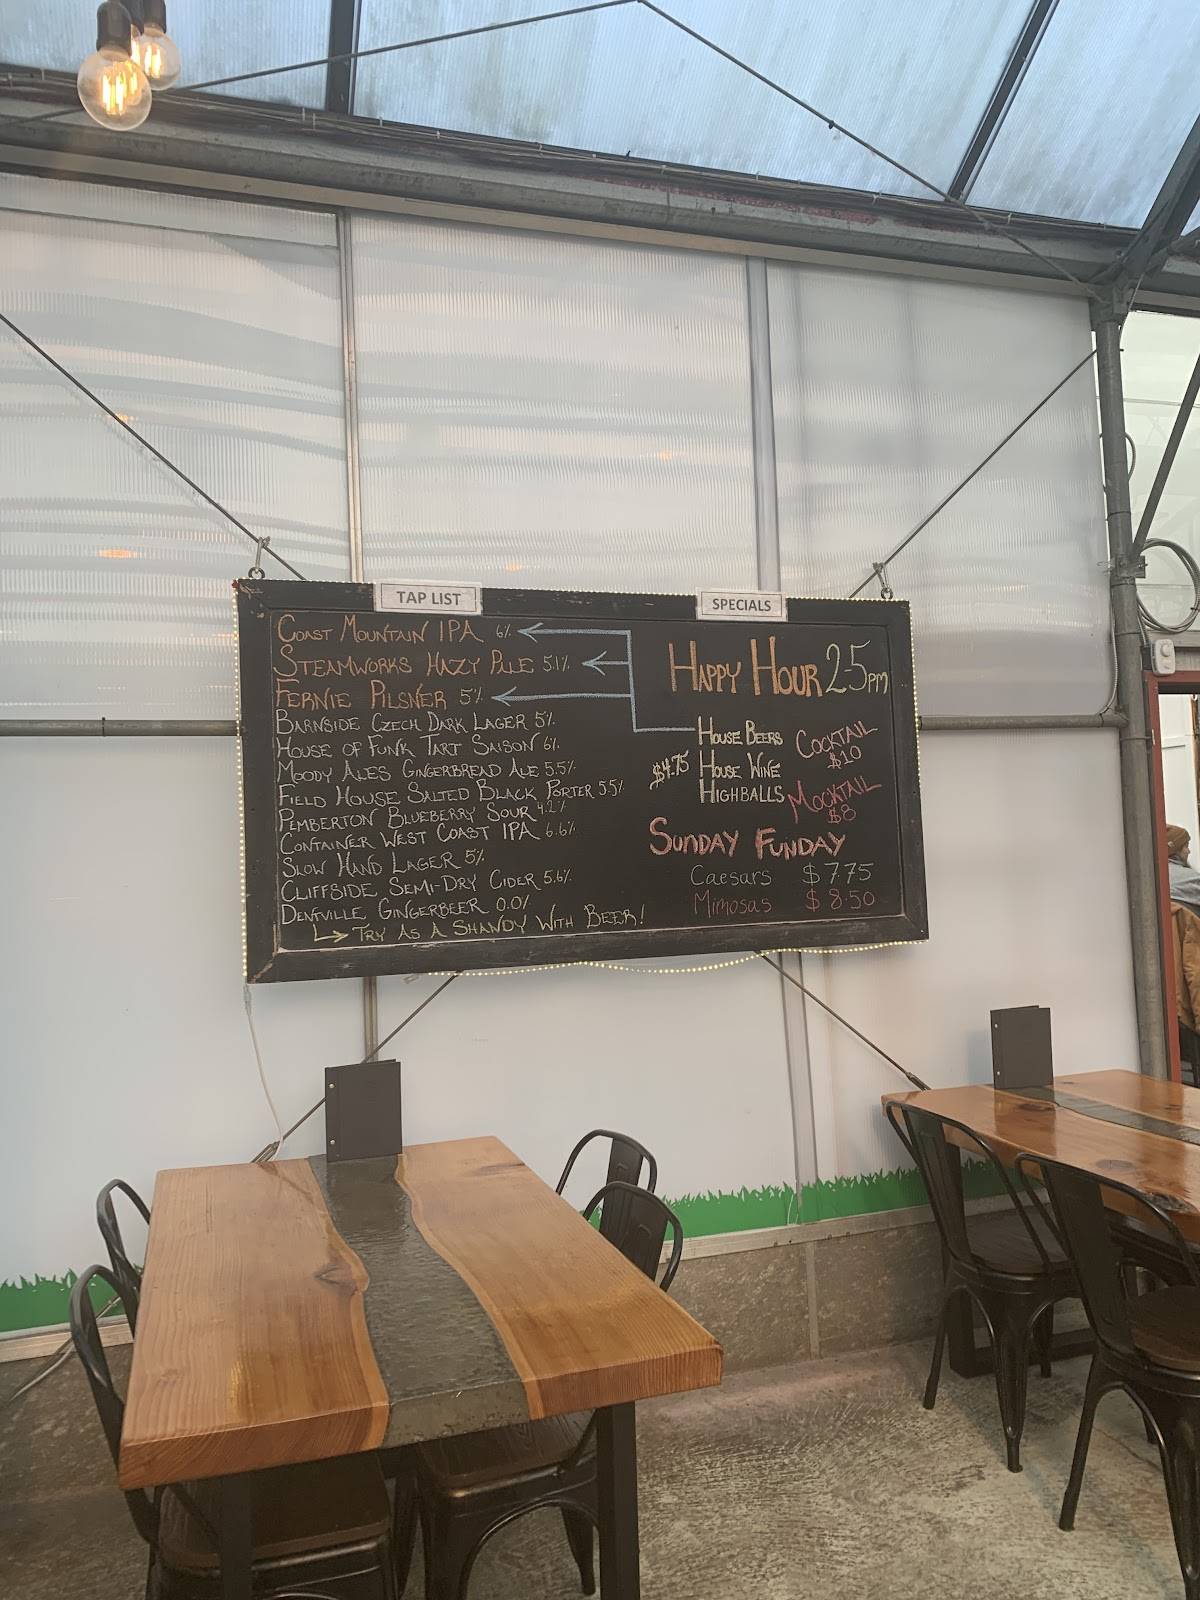 TAP LIST
COAST MOUNTAIN IPA 6%
STEAMWORKS HAZY PALE 5.1%
FERNIE PILSNER 5%
BARNSIDE CZECH DARK LAGER 5%
HOUSE OF FUNK TART SAISON 6%
MOODY ALES GINGERBREAD ALE 5.5%
FIELD HOUSE SALTED BLACK PORTER 5.5%
PEMBERTON BLUEBERRY SOUR 4.2%
CONTAINER WEST COAST IPA 6.6%
SLOW HAND LAGER 5%
CLIFFSIDE SEMI-DRY CIDER 5.6%
DENTVILLE GINGERBEER 0.0%
TRY AS A SHANDY WITH BEER!
SPECIALS
HAPPY HOUR 2-5PM
HOUSE BEERS
$4.75 HOUSE WINE
HIGHBALLS
COCKTAIL
$10
MOCKTAIL
$8
SUNDAY FUNDAY
Caesars $7.75
Mimosas $8.50